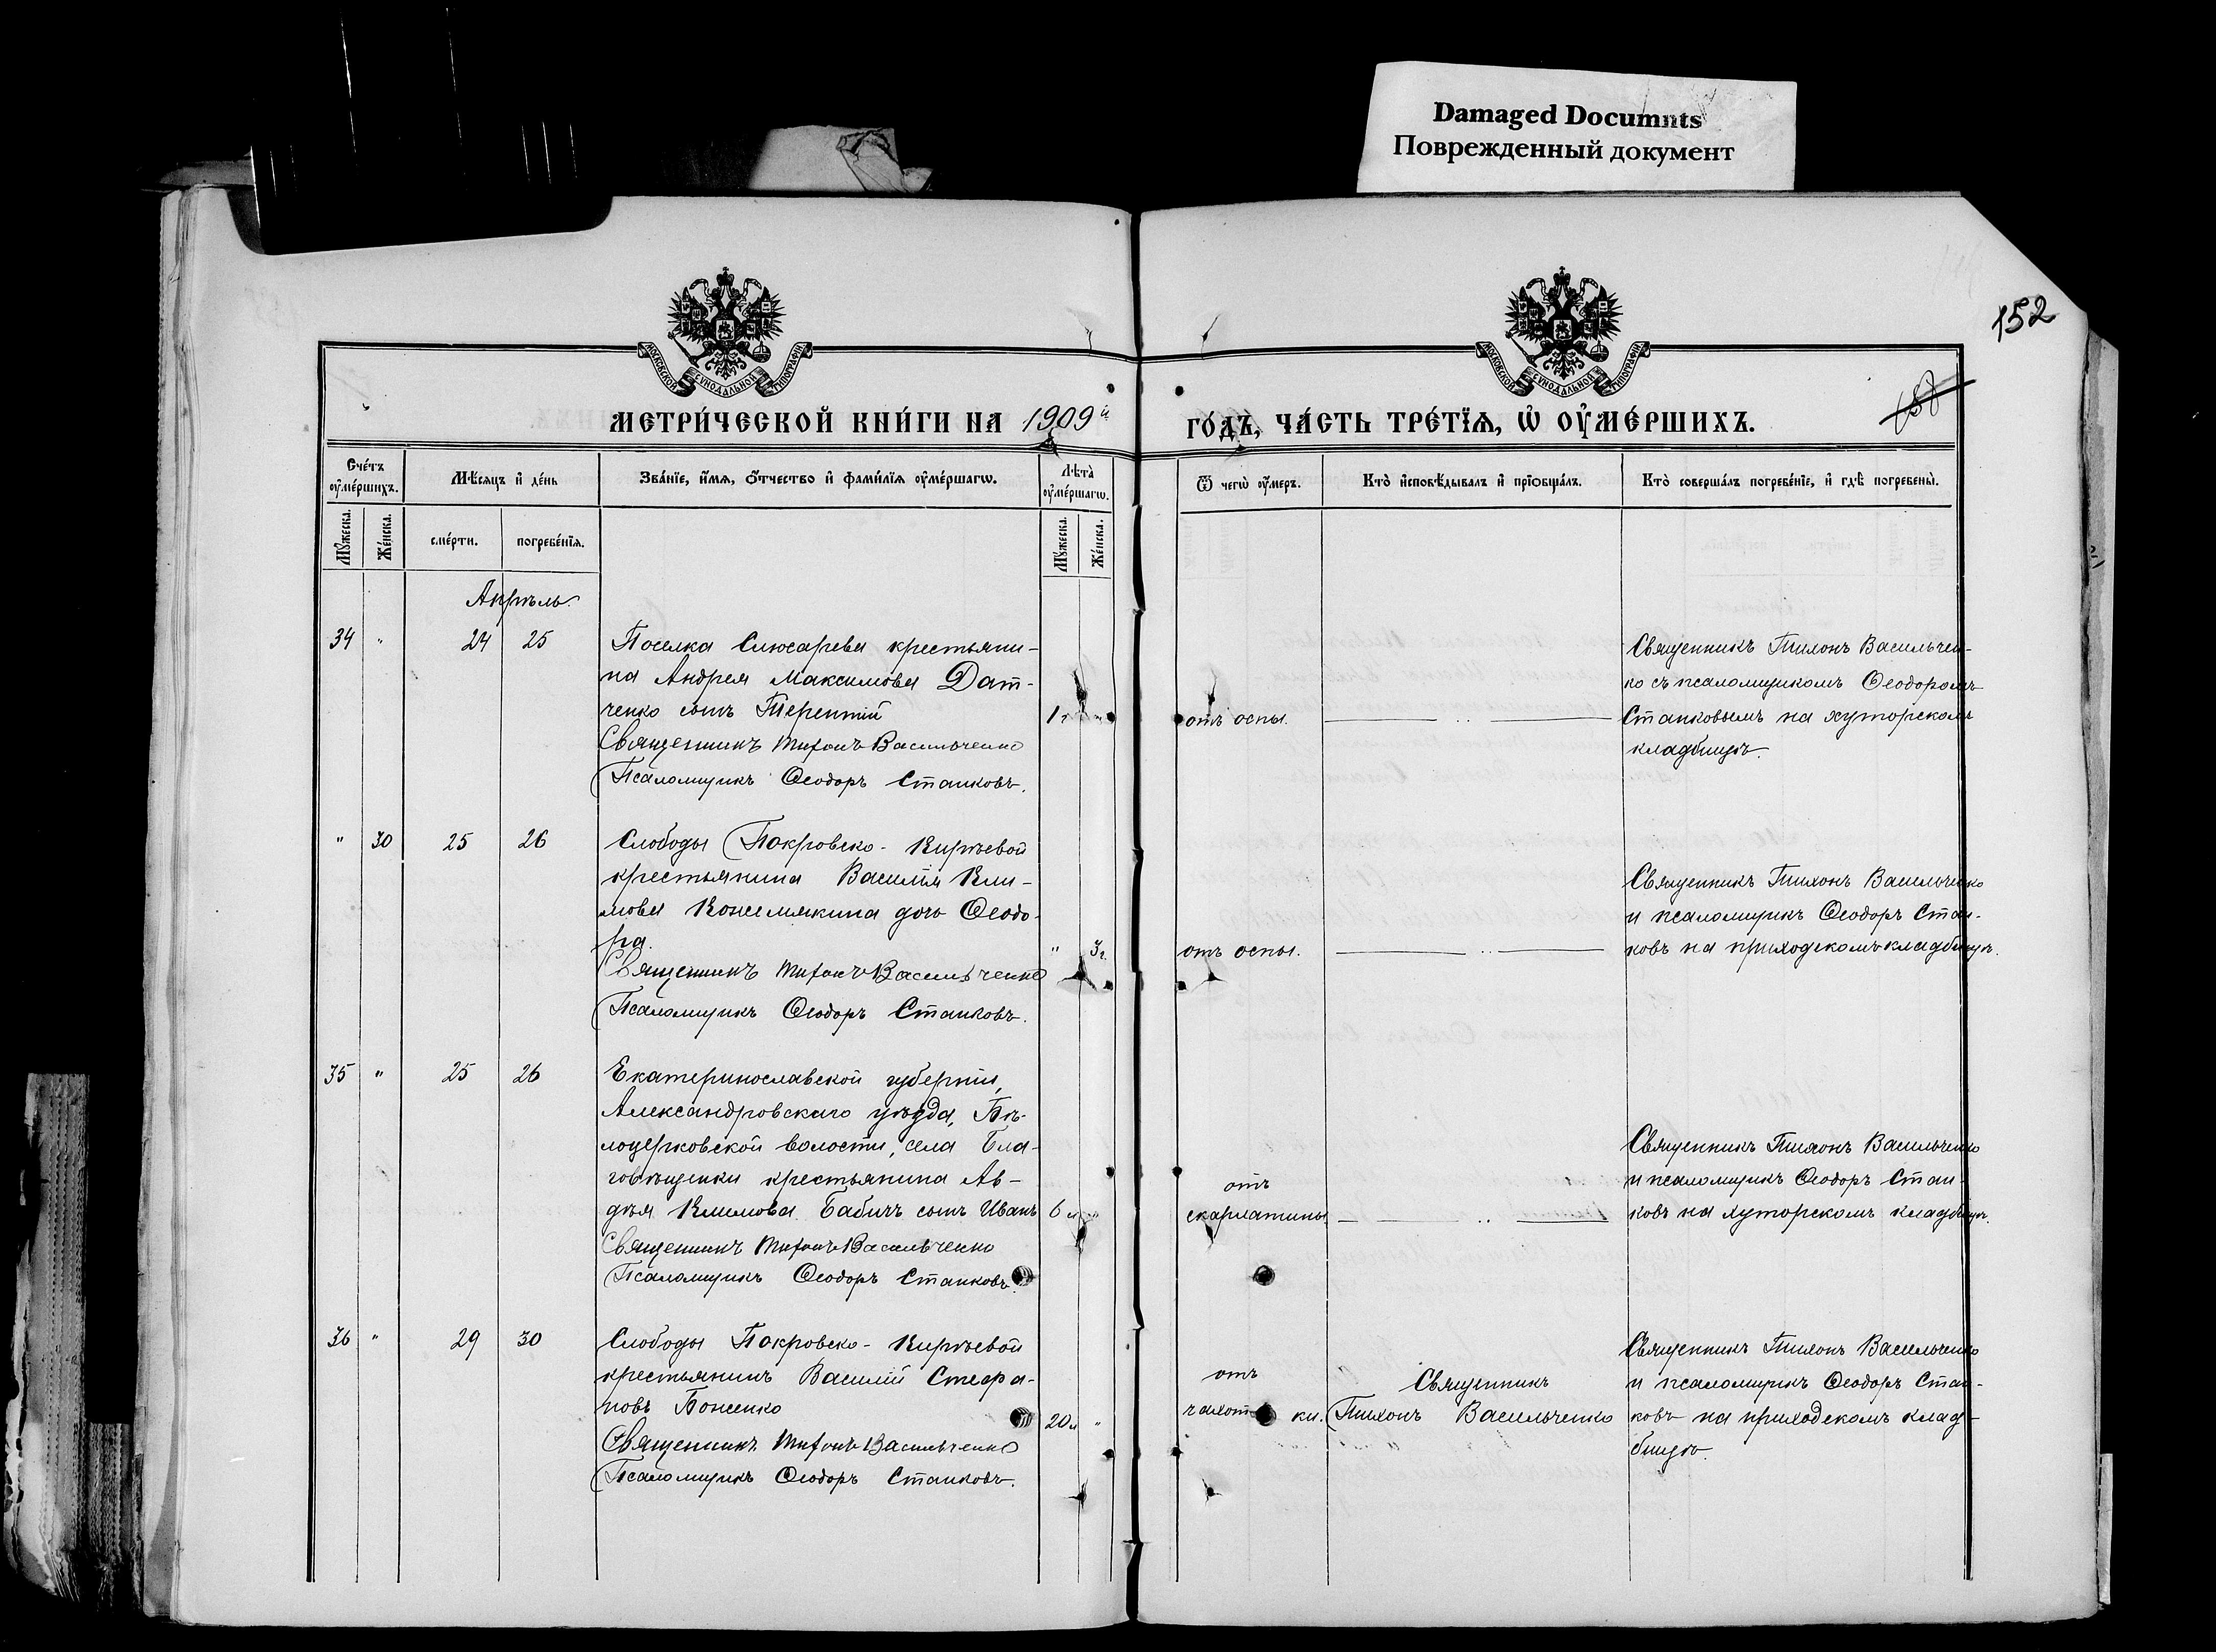 Damaged Documnts
Поврежденный документ
152
МОСКОВСКОЙ СѴНОДАЛЬНОЙ ТИПОГРАФІИ
МОСКОВСКОЙ СѴНОДАЛЬНОЙ ТИПОГРАФІИ
МЕТРИ́ЧЕСКОЙ КНИ́ГИ НА 1909й
ГО́ДЪ, ЧА́СТЬ ТРЕ́ТЇѦ, Ѡ҆ ОУ҆МЕ́РШИХЪ.
Сче́тъ оу҆ме́ршихъ.
Мѣ́сяцъ и҆ де́нь
Зва́нїе, и҆́мѧ, ѻ҆́тчество и҆ фами́лїѧ оу҆ме́ршагѡ.
Лѣта̀ оу҆ме́ршагѡ.
Ѿ чегѡ̀ оу҆́меръ.
Кто̀ и҆сповѣ́дывалъ и҆ прїѻбща́лъ.
Кто̀ соверша́лъ погребе́нїе, и҆ гдѣ̀ погребены̀.
Мꙋ́жеска.
Же́нска.
сме́рти.
погребе́нїѧ.
Мꙋ́жеска.
Же́нска.
Апрѣль.
34 " 24 25 Поселка Слюсарева крестьяни-
на Андрея Максимова Дат-
ченко сынъ Терентій 1 г
Священникъ Тихонъ Васильченко
Псаломщикъ Ѳеодоръ Станковъ.
отъ оспы.
Священникъ Тихонъ Васильчен-
ко съ псаломщикомъ Ѳеодоромъ
Станковымъ на хуторскомъ
кладбищѣ.
" 30 25 26 Слободы Покровско-Кирѣевой
крестьянина Василія Кли-
мова Кожемякина дочь Ѳеодо-
ра. " 3 г.
Священникъ Тихонъ Васильченко
Псаломщикъ Ѳеодоръ Станковъ.
отъ оспы.
Священникъ Тихонъ Васильченко
и псаломщикъ Ѳеодоръ Стан-
ковъ на приходскомъ кладбищѣ.
35 " 25 26 Екатеринославской губерніи,
Александровскаго уѣзда, Бѣ-
лоцерковской волости, села Бла-
говѣщенки крестьянина Ав-
дѣя Климова Бабичъ сынъ Иванъ 6
Священникъ Тихонъ Васильченко
Псаломщикъ Ѳеодоръ Станковъ.
отъ
скарлатины
Священникъ Тихонъ Васильченко
и псаломщикъ Ѳеодоръ Стан-
ковъ на хуторскомъ кладбищѣ.
36 " 29 30 Слободы Покровско-Кирѣевой
крестьянинъ Василій Стефа-
новъ Боженко 20 л "
Священникъ Тихонъ Васильченко
Псаломщикъ Ѳеодоръ Станковъ.
отъ
чахотки.
Священникъ
Тихонъ Васильченко
Священникъ Тихонъ Васильченко
и псаломщикъ Ѳеодоръ Стан-
ковъ на приходскомъ клад-
бищѣ.